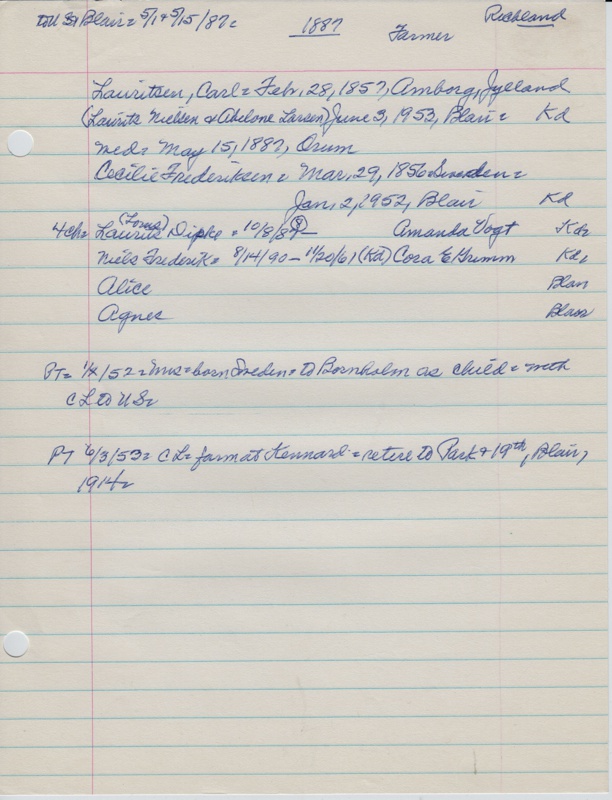 to U.S. + Blair = 5/1 + 5/15/87 = 1887 Farmer Richland
Lauritsen, Carl = Feb, 28, 1857, Amborg, Jylland
(Laurits Nielsen & Abelone Larsen) June 3, 1953, Blair = Kd
med = May 15, 1887, Orum
Cecilie Frederiksen = Mar, 29, 1856 Sweden =
Jan, 2, 1952, Blair Kd
4 ch = Laurits (Louis) Dipke = 10/8/88 Amanda Vogt Kd =
Niels Frederik = 8/14/90 - 11/20/61 (Kd) Cora E Grimm Kd,
Alice Blair
Agnes Blair
PT = 1/ /52 = Mrs = born Sweden = to Bornholm as child = with
CL to US =
PT 6/3/53 = CL = farm at Kennard = retire to Park + 19th, Blair,
1914 =